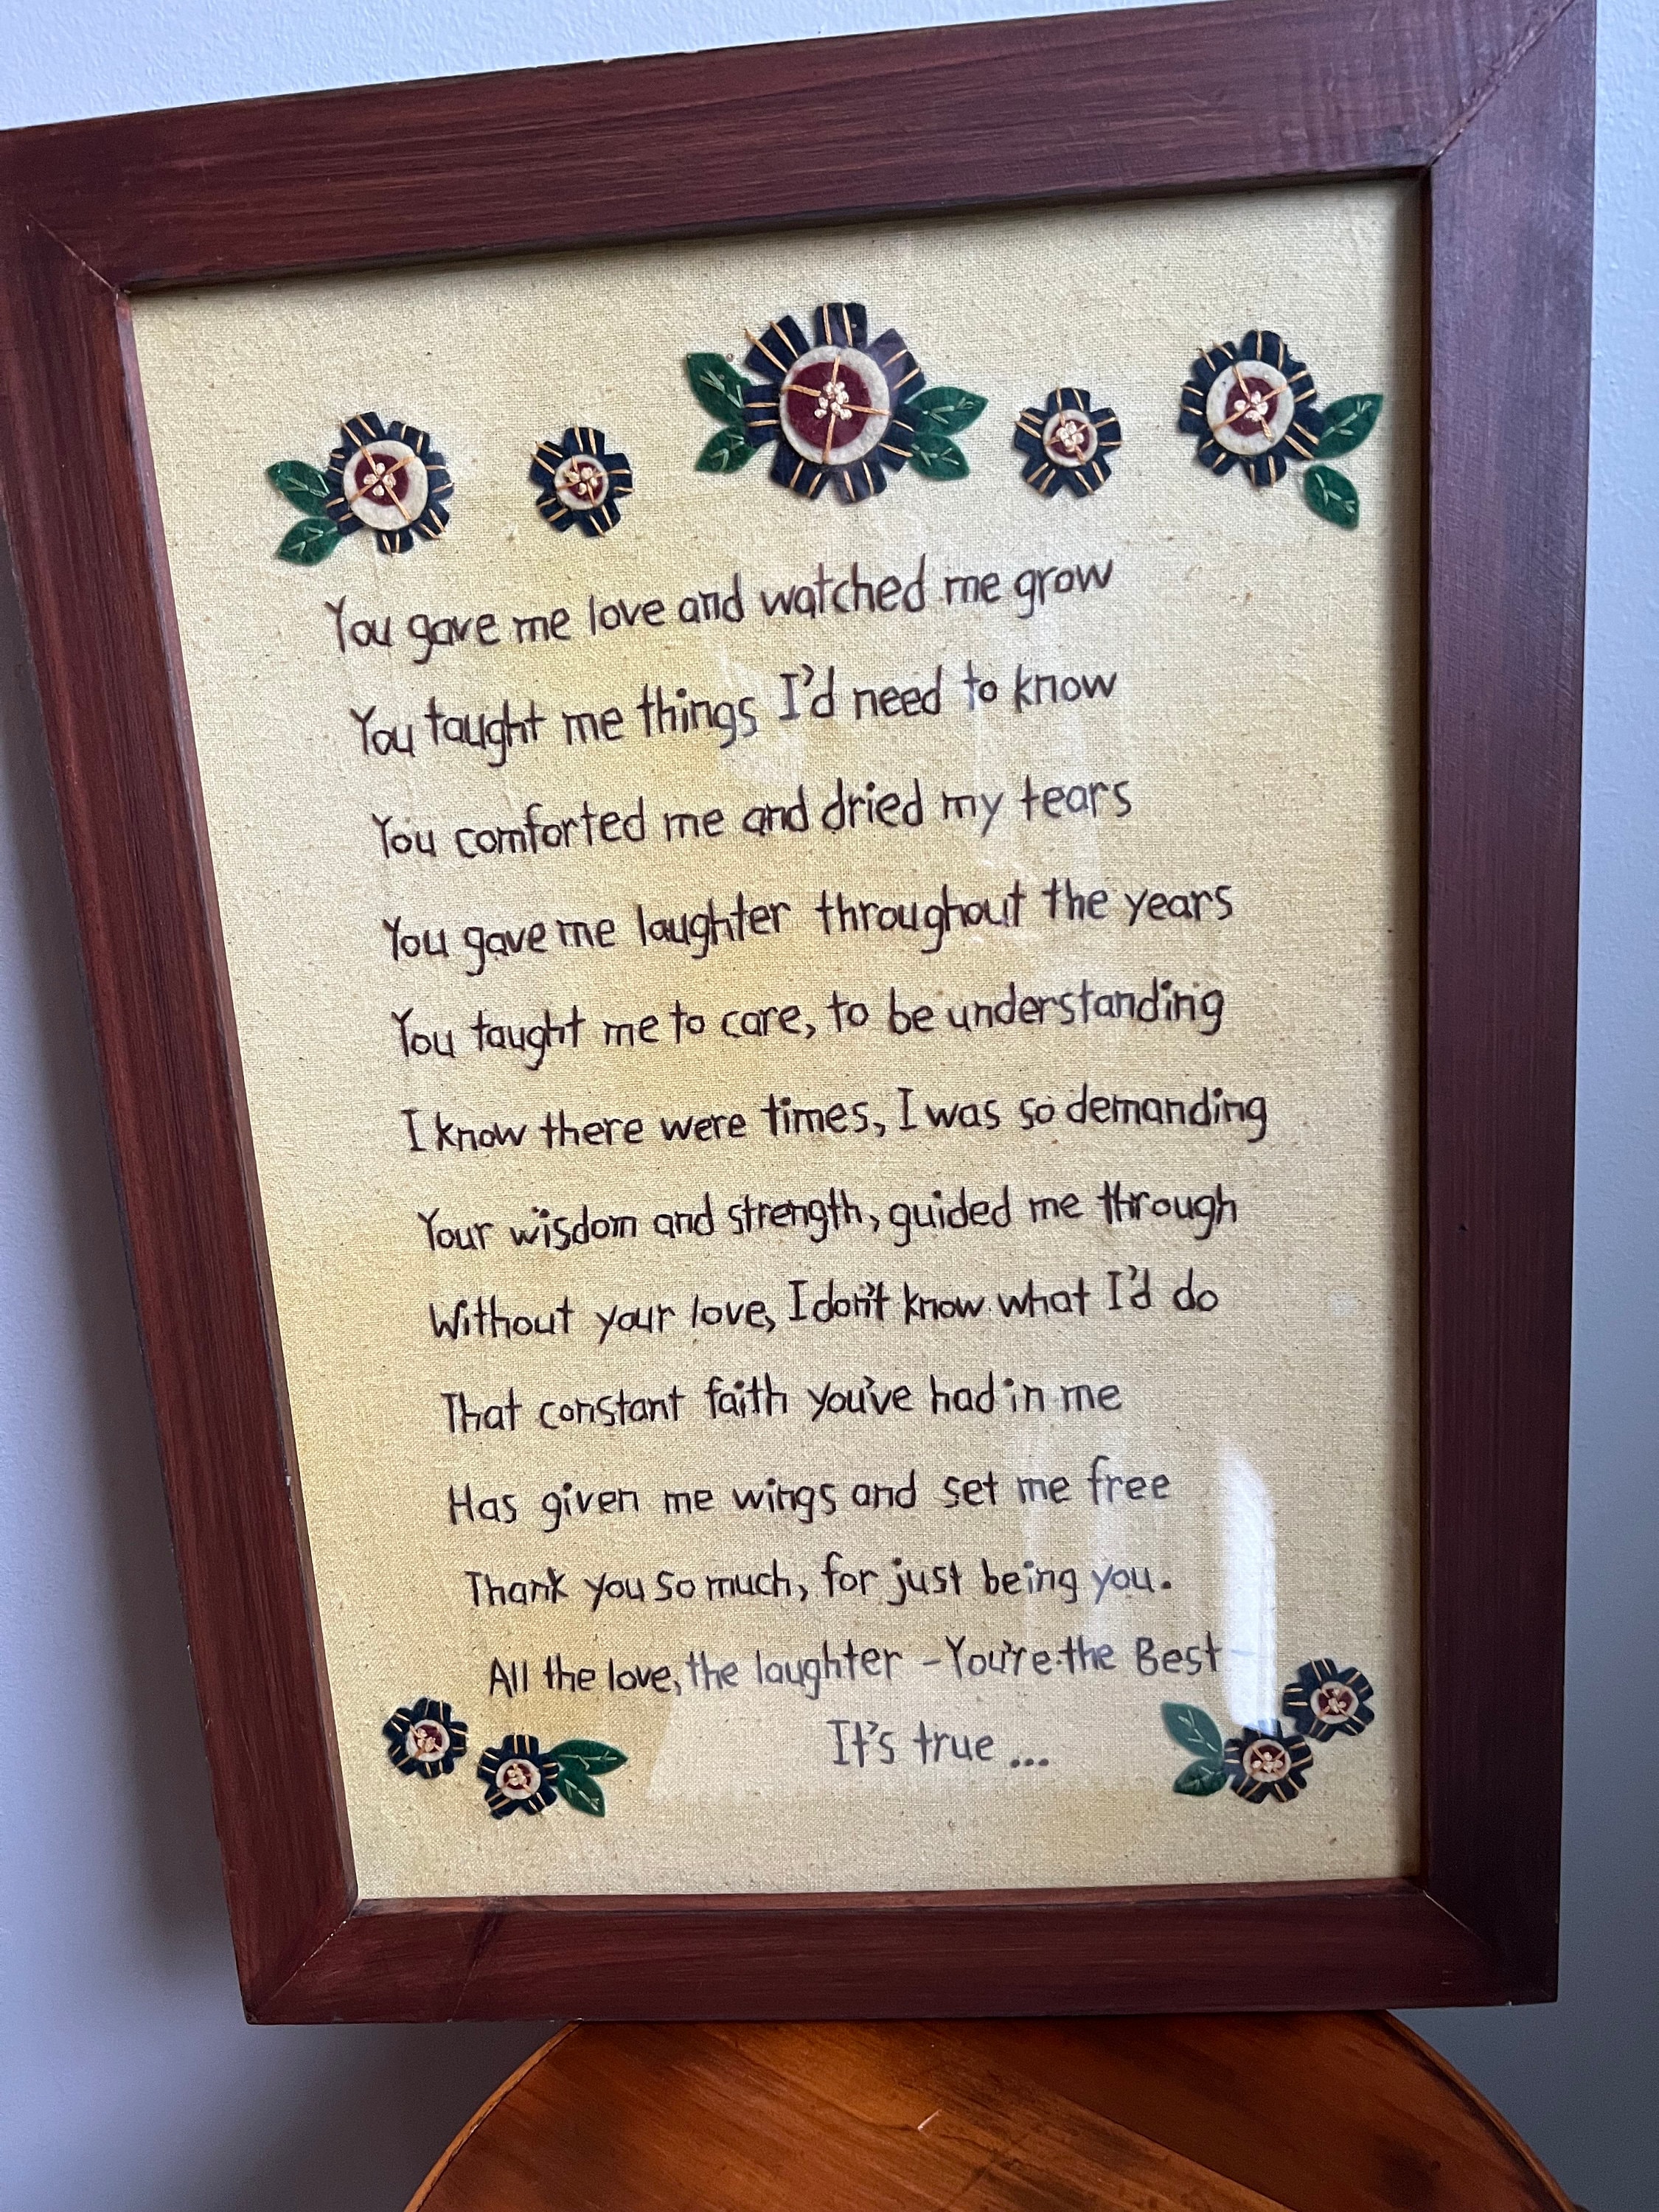 You gave me love and watched me grow
You taught me things I'd need to know
You comforted me and dried my tears
You gave me laughter throughout the years
You taught me to care, to be understanding
I know there were times, I was so demanding
Your wisdom and strength, guided me through
Without your love, I don't know what I'd do
That constant faith you've had in me
Has given me wings and set me free
Thank you so much, for just being you.
All the love, the laughter - You're the Best -
It's true ...